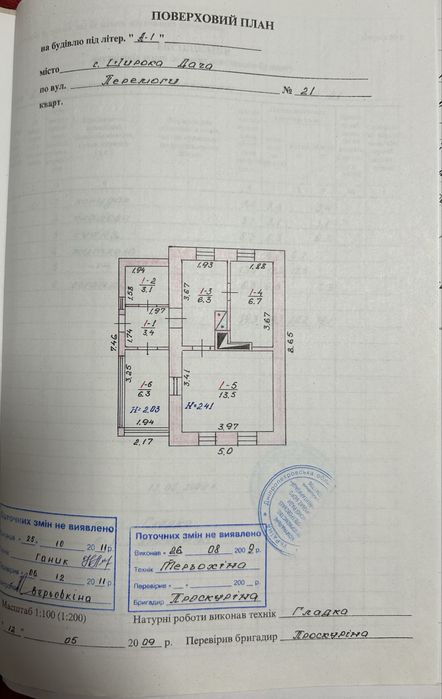 ПОВЕРХОВИЙ ПЛАН
на будівлю під літер. " А-1 "
місто с. Широка Дача
по вул. Перемоги № 21
кварт.
1,94
1-2
3.1
1,58
1,97
1-1
3.4
1,74
7.46
3,25
1-6
6.3
H=2.03
1.94
2.17
1,93
3,67
1-3
6.3
1.88
1-4
6.7
3,67
8.65
3,41
1-5
13.5
H=2.41
3.97
5.0
Поточних змін не виявлено
25. 10 2011 р.
Ганик
06 12 2011 р.
Поточних змін не виявлено
Виконав " 26 08 2009 р.
Технік Терьохіна
Перевірив " 200 р.
Бригадир Проскуріна
Дніпропетровська
Масштаб 1:100 (1:200)
Натурні роботи виконав технік Гладка
" 12 " 05 2009 р. Перевірив бригадир Проскуріна